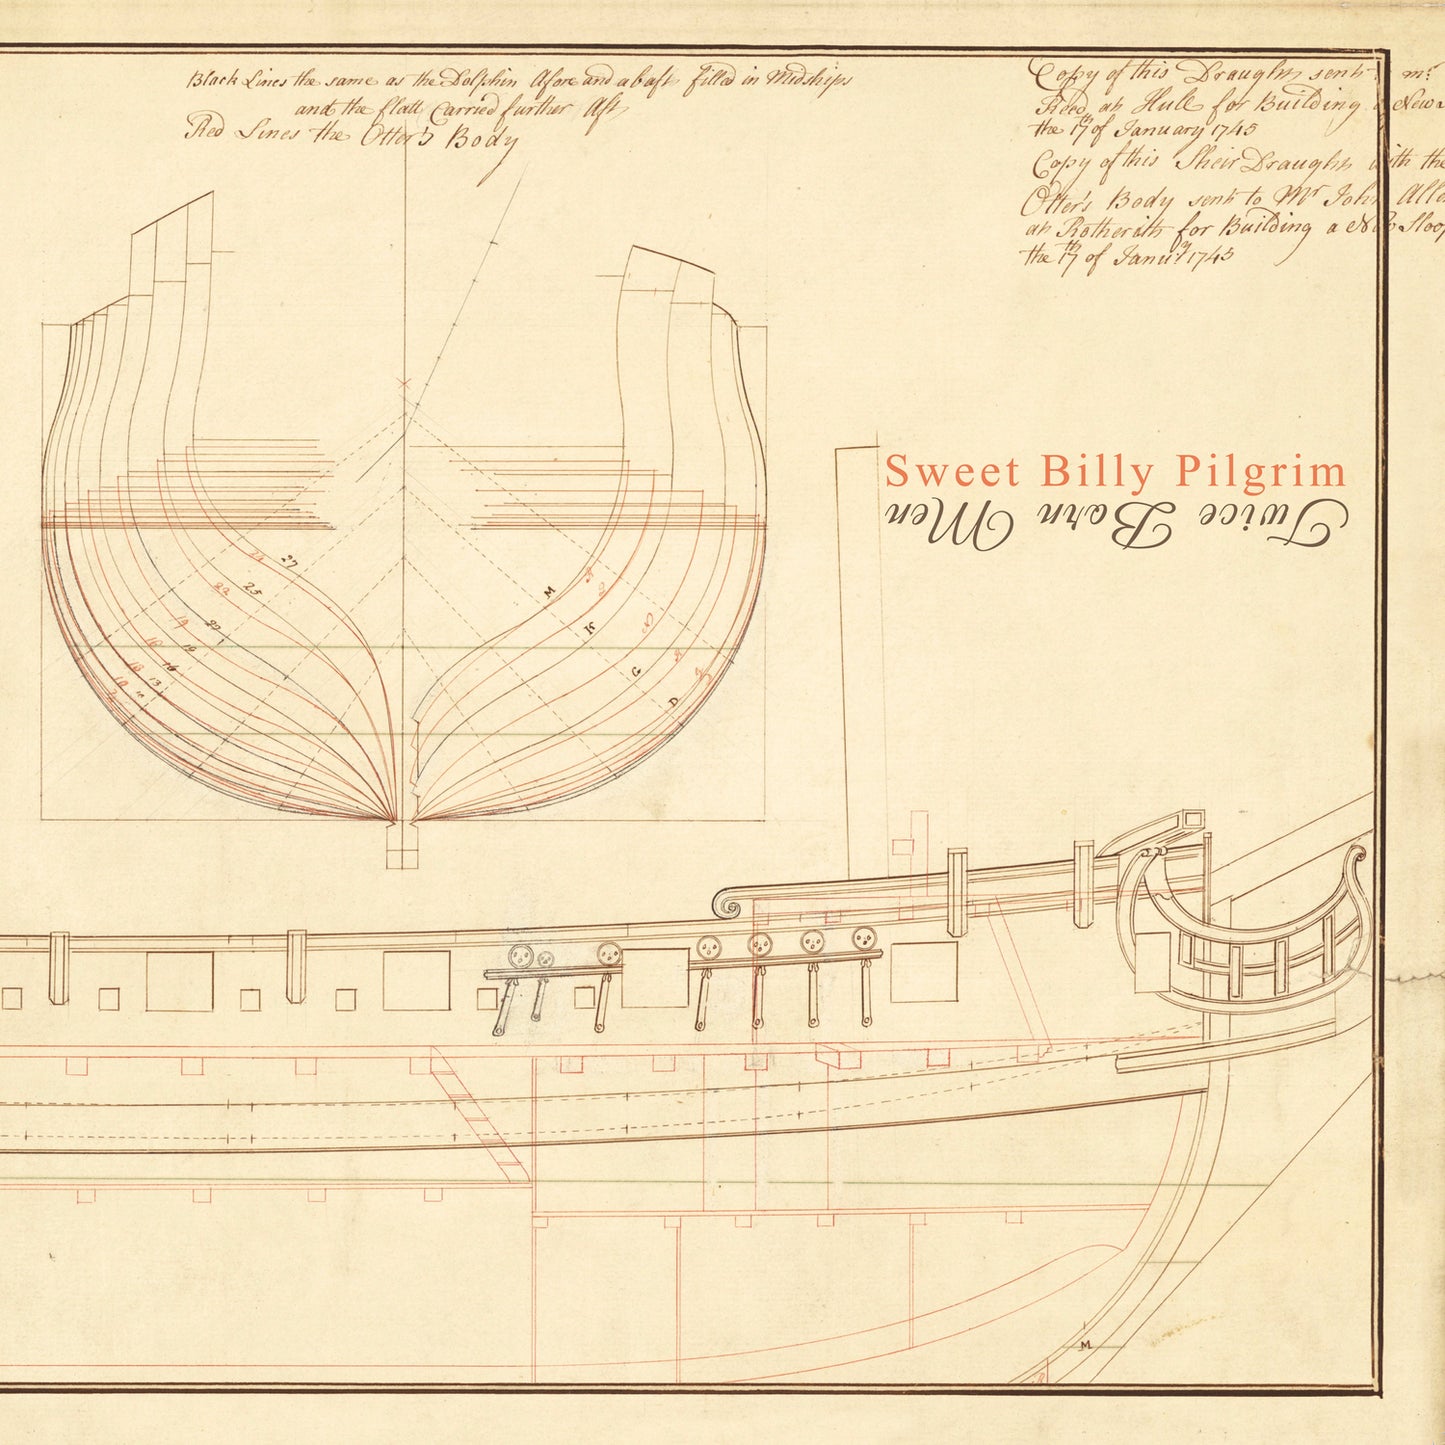 Black Lines the same as the Dolphin Afore and abaft filled in Midships
and the flatt Carried further Aft
Red Lines the Otter's Body
Copy of this Draught sent
Reed at Hull for Building a New
the 17th of January 1745
Copy of this Sheir Draught with the
Otter's Body sent to Mr John Allen
at Rotherith for Building a New Sloop
the 17th of Janury 1745
Sweet Billy Pilgrim
Twice Born Men
27
25
22
20
19
19
16
13
M
K
G
D
M